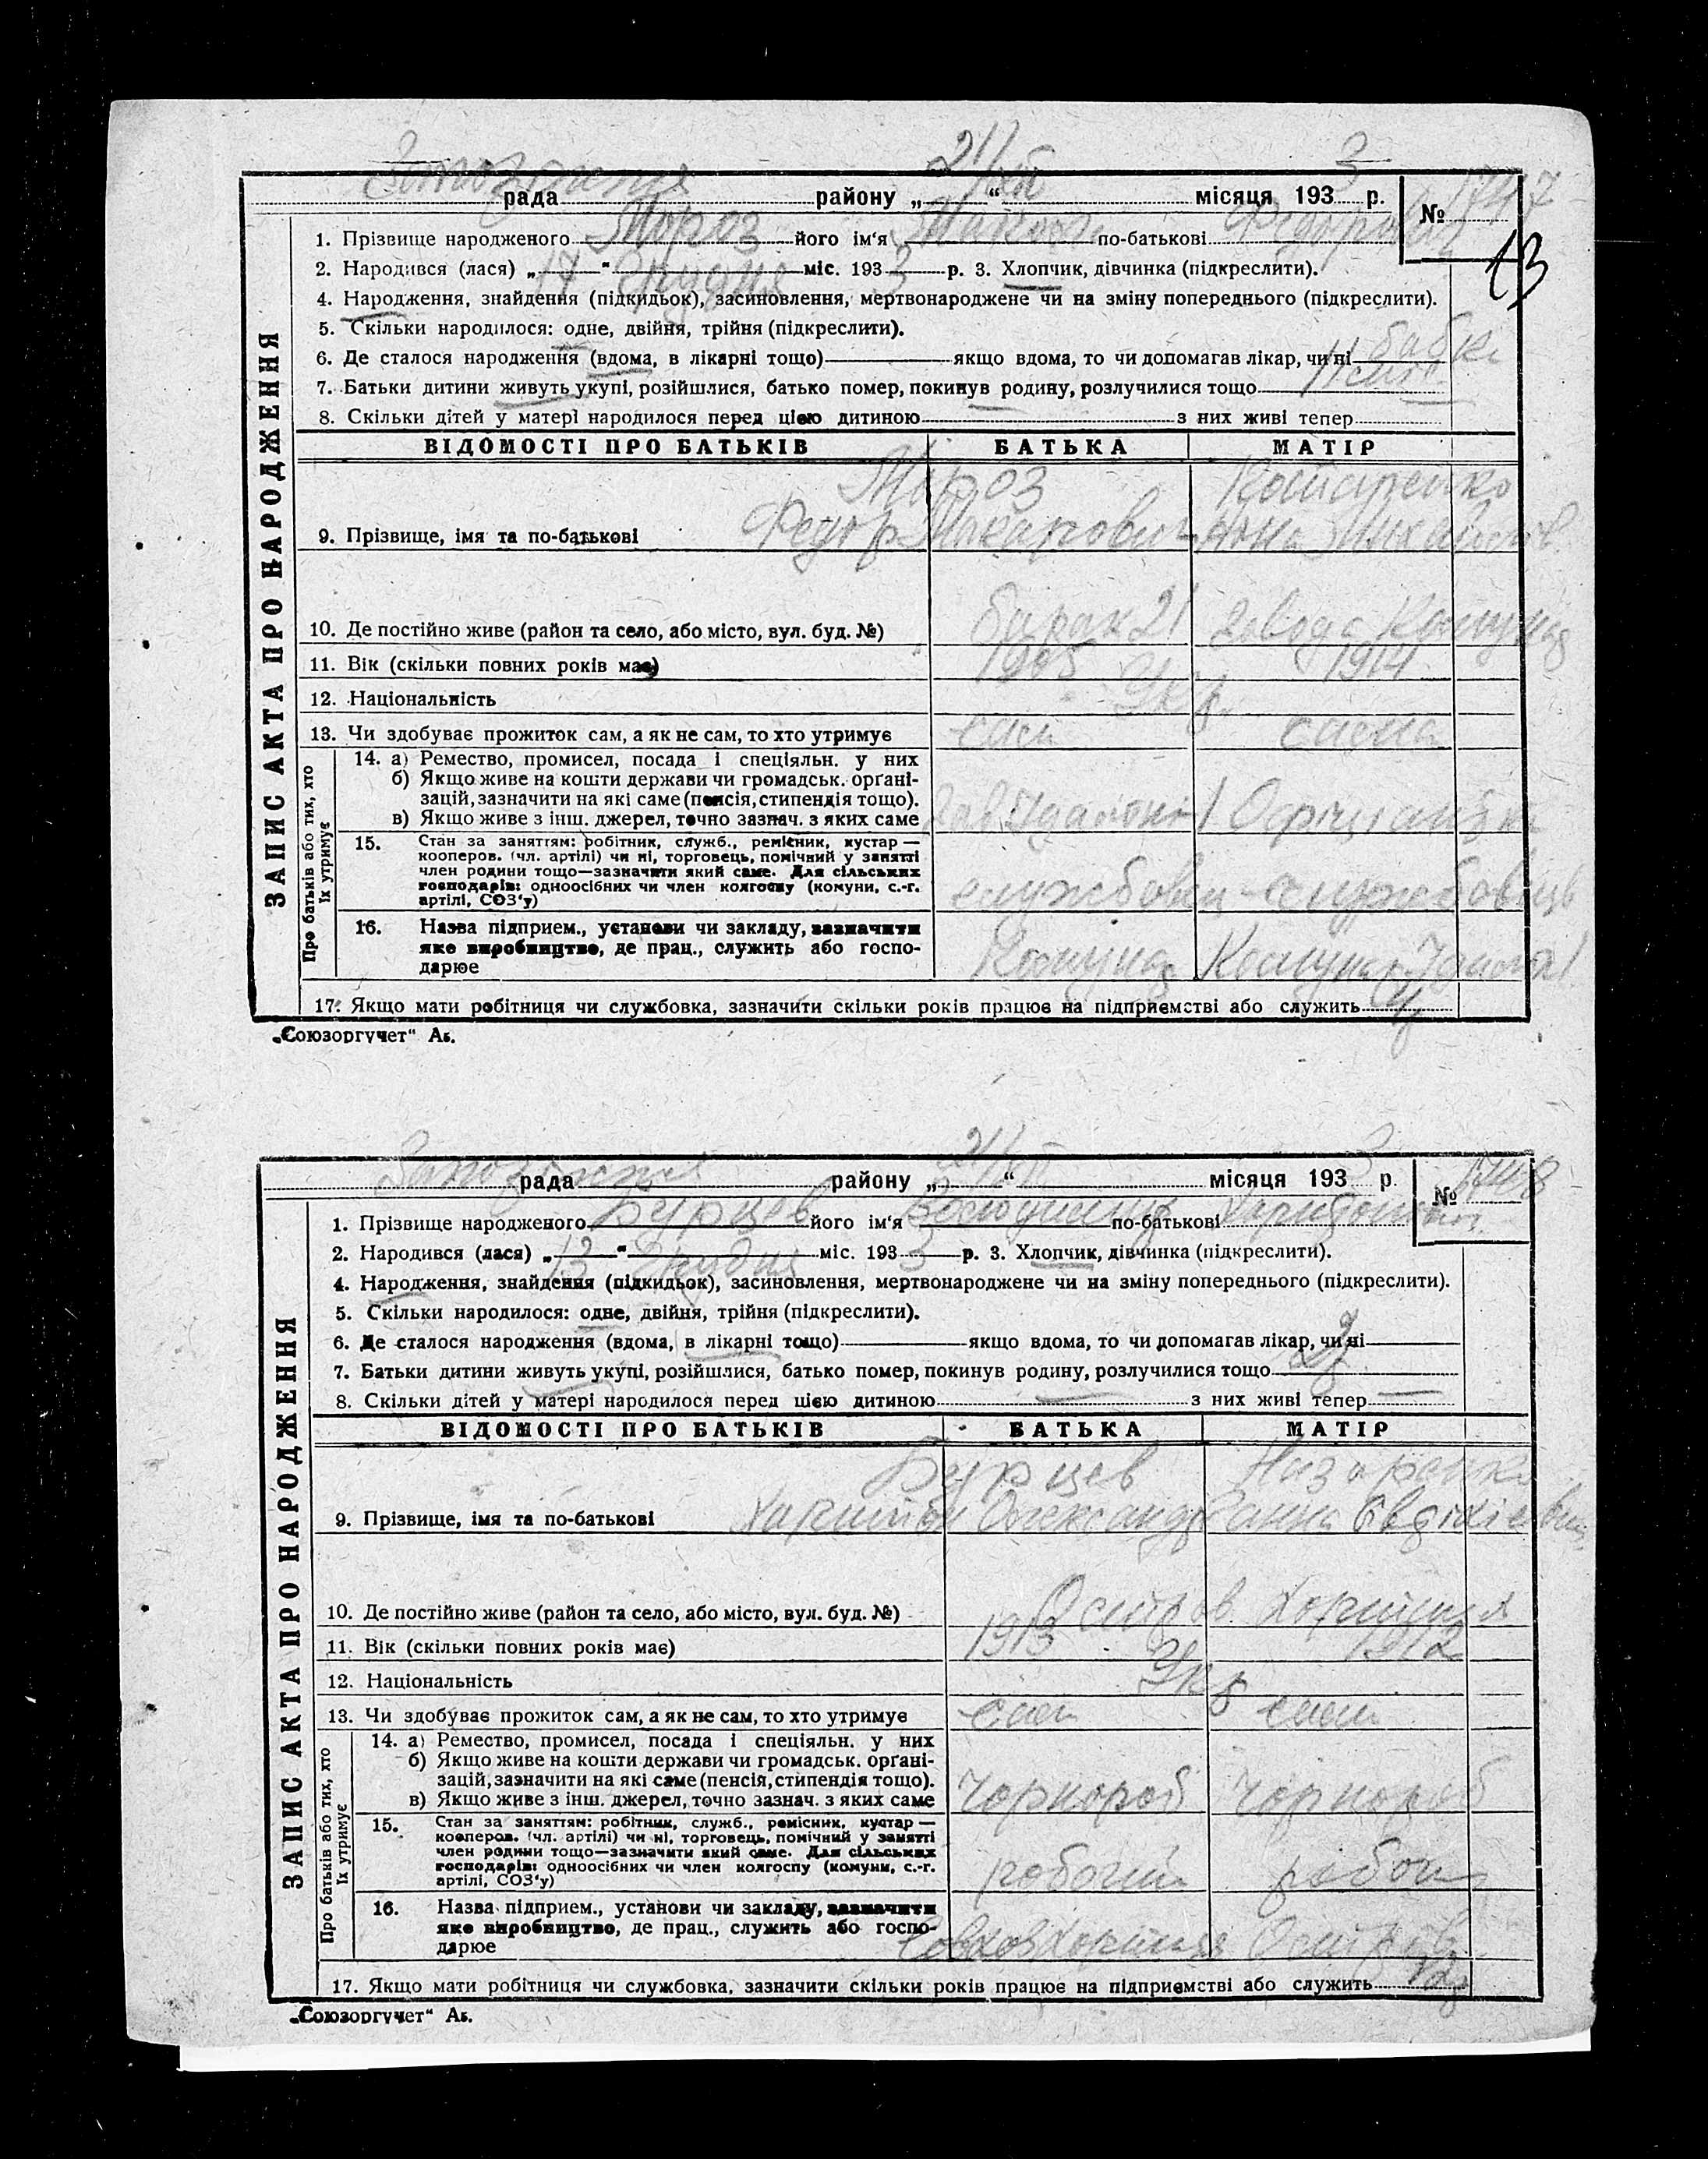 Запоріжжя 21/XII 3
рада району „ “ місяця 193 р. № 1747
13
1. Прізвище народженого Мороз його ім'я по-батькові Федорович
2. Народився (лася) „17“ Грудня міс. 1933 р. 3. Хлопчик, дівчинка (підкреслити).
4. Народження, знайдення (підкидьок), засиновлення, мертвонароджене чи на зміну попереднього (підкреслити).
5. Скільки народилося: одне, двійня, трійня (підкреслити).
6. Де сталося народження (вдома, в лікарні тощо) якщо вдома, то чи допомагав лікар, чи ні бабка
7. Батьки дитини живуть укупі, розійшлися, батько помер, покинув родину, розлучилися тощо
8. Скільки дітей у матері народилося перед цією дитиною — з них живі тепер —
ЗАПИС АКТА ПРО НАРОДЖЕННЯ
ВІДОМОСТІ ПРО БАТЬКІВ БАТЬКА МАТІР
Мороз
9. Прізвище, імя та по-батькові Федор Макарович Анна
10. Де постійно живе (район та село, або місто, вул. буд. №) барак 21 завода Комунар
11. Вік (скільки повних років має) 1905 1914
12. Національність Укр.
13. Чи здобуває прожиток сам, а як не сам, то хто утримує сам сама
Про батьків або тих, хто їх утримує
14. а) Ремество, промисел, посада і спеціяльн. у них
б) Якщо живе на кошти держави чи громадськ. органі-
зацій, зазначити на які саме (пенсія, стипендія тощо).
в) Якщо живе з інш. джерел, точно зазнач. з яких саме Офіціантка
15. Стан за заняттям: робітник, служб., ремісник, кустар —
кооперов. (чл. артілі) чи ні, торговець, помічний у занятті
член родини тощо—зазначити який саме. Для сільських
господарів: одноосібних чи член колгоспу (комуни, с.-г.
артілі, СОЗ'у) службовец службовець
16. Назва підприєм., установи чи закладу, зазначити
яке виробництво, де прац., служить або госпо-
дарює Комунар Комунар
17. Якщо мати робітниця чи службовка, зазначити скільки років працює на підприємстві або служить
„Союзоргучет“ Аб.
Запоріжжя 21/XII 3
рада району „ “ місяця 193 р. № 1748
1. Прізвище народженого Бурцев його ім'я Володимир по-батькові
2. Народився (лася) „13“ Грудня міс. 1933 р. 3. Хлопчик, дівчинка (підкреслити).
4. Народження, знайдення (підкидьок), засиновлення, мертвонароджене чи на зміну попереднього (підкреслити).
5. Скільки народилося: одне, двійня, трійня (підкреслити).
6. Де сталося народження (вдома, в лікарні тощо) якщо вдома, то чи допомагав лікар, чи ні
7. Батьки дитини живуть укупі, розійшлися, батько помер, покинув родину, розлучилися тощо
8. Скільки дітей у матері народилося перед цією дитиною — з них живі тепер —
ЗАПИС АКТА ПРО НАРОДЖЕННЯ
ВІДОМОСТІ ПРО БАТЬКІВ БАТЬКА МАТІР
Бурцев Назаренко
9. Прізвище, імя та по-батькові Харитон Олександр Ганна
10. Де постійно живе (район та село, або місто, вул. буд. №) Остров Хортиця
11. Вік (скільки повних років має) 1913 1912
12. Національність Укр
13. Чи здобуває прожиток сам, а як не сам, то хто утримує сам сам
Про батьків або тих, хто їх утримує
14. а) Ремество, промисел, посада і спеціяльн. у них
б) Якщо живе на кошти держави чи громадськ. органі-
зацій, зазначити на які саме (пенсія, стипендія тощо).
в) Якщо живе з інш. джерел, точно зазнач. з яких саме Чорнороб Чорнороб
15. Стан за заняттям: робітник, служб., ремісник, кустар —
кооперов. (чл. артілі) чи ні, торговець, помічний у занятті
член родини тощо—зазначити який саме. Для сільських
господарів: одноосібних чи член колгоспу (комуни, с.-г.
артілі, СОЗ'у) робочий
16. Назва підприєм., установи чи закладу, зазначити
яке виробництво, де прац., служить або госпо-
дарює Совхоз Хортиця Остров
17. Якщо мати робітниця чи службовка, зазначити скільки років працює на підприємстві або служить
„Союзоргучет“ Аб.